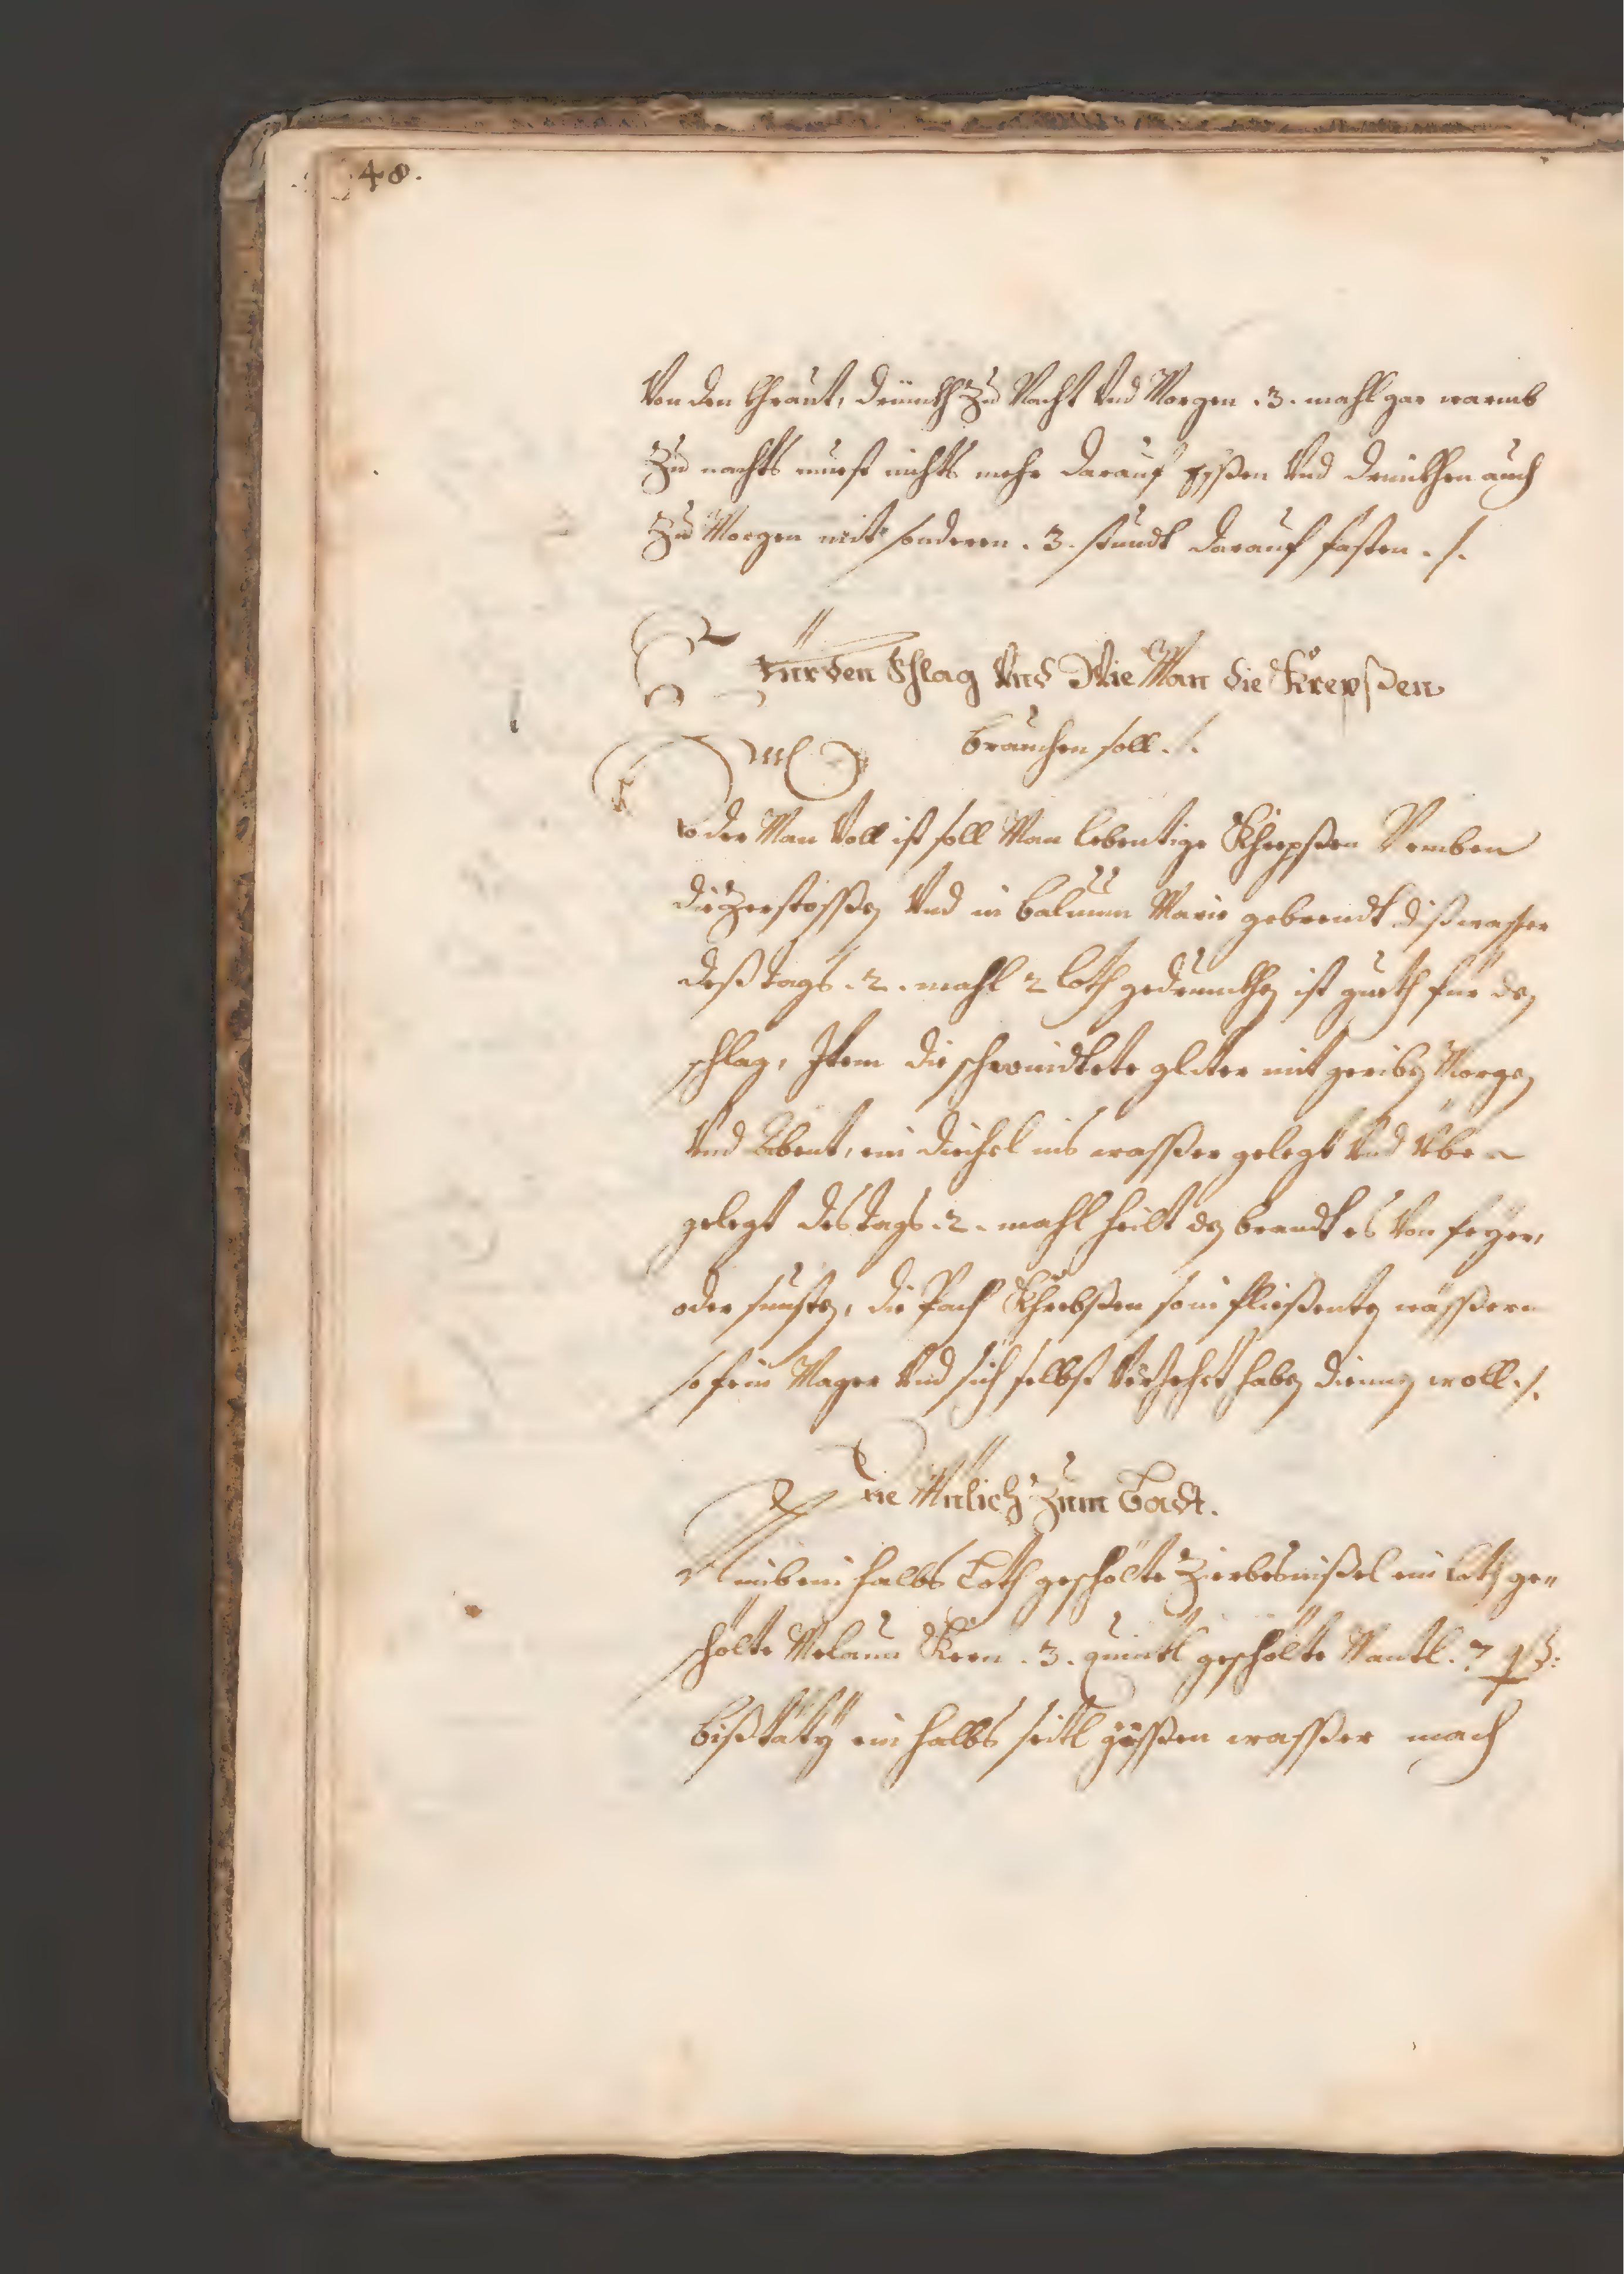 48.
Von den Chraut, drinckh zu Nacht Vnd Morgen .3. mahl gar warmb
Zu nachts muest nichts mehr darauf Essen Vnd drinckhen auch
Zu Morgen nit sonderen .3. stundt darauf fasten ./.
Für den Schlag Vnd Wie Man die Krepßen
brauchen soll ./.
der Man Voll ist soll Man lebentige Khrepßen Nemben
die Zerstossen Vnd in balnum Marie gebrendt diß wasser
deß tags .2. mahl 2 loth gedrunckhen ist gueth für den
schlag, Item die schwindtete gliter mit geriben Morgen
Vnd Abent, ein diechel ins wasser gelegt Vnd Vber
gelegt des tags .2. mahl heilt den brandt es Von feyer,
oder sunsten, die Pach Khrebßen so in fliessenten wässern
so fein Mager Vnd sich selbst Verzehrt haben dienen woll ./.
Die Milich Zum Badt.
Nimb ein halbs Loth geschölte Zierbesnißel ein loth ge=
schölte Melaun Kern .3. quintl geschölte Mantl.
bißtäty ein halbs seitl süssen wasser mach